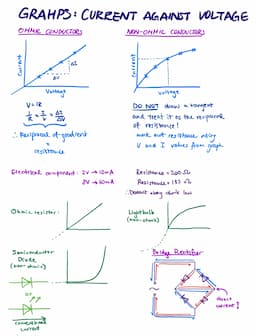 GRAHPS: CURRENT AGAINST VOLTAGE
OHMIC CONDUCTORS
NON-OHMIC CONDUCTORS
Current
ΔI
ΔV
Voltage
Current
Voltage
V = IR
1/R = I/V = ΔI/ΔV
∴ Reciprocal of gradient
= resistance
DO NOT draw a tangent
and treat it as the reciprocal
of resistance!
work out resistance using
V and I values from graph
Electrical component: 2V → 10mA
2V → 10mA
Resistance = 200 Ω
Resistance =
∴ Doesn't obey ohm's law
Ohmic resistor:
Lightbulb
(non-ohmic)
Semiconductor
Diode
(non-ohmic)
conventional
current
Bridge Rectifier
direct
current!